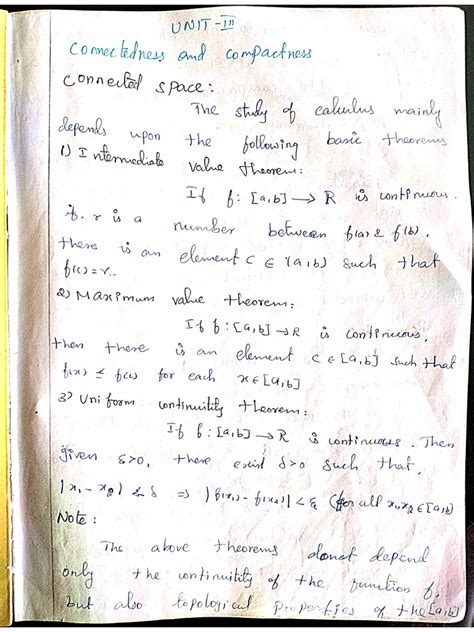 UNIT-III
Connectedness and compactness
Connected space:
The study of calculus mainly
depends upon the following basic theorems
1) Intermediate value theorem:
If f: [a,b] → R is continuous.
if. r is a number between f(a) & f(b).
there is an element c ∈ (a,b) such that
f(c)=r..
2) Maximum value theorem:
If f: [a,b] → R is continuous,
then there is an element c ∈ [a,b] such that
f(x) ≤ f(c) for each x ∈ [a,b]
3) Uniform continuitity theorem:
If f: [a,b] → R is continuous. Then
given δ>0, there exist δ>0 such that,
|x₁ - x₂| < δ ⇒ |f(x₁) - f(x₂)| < ξ (for all x₁,x₂ ∈ [a,b])
Note:
The above theorems donot depend
only the continuitity of the function f.
but also topological properties of the [a,b]